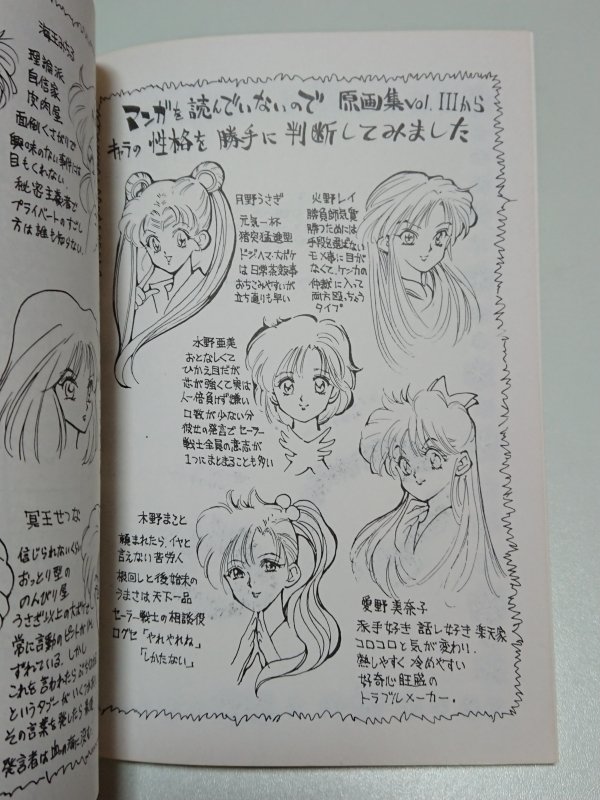 マンガを読んでいないので 原画集vol.IIIから
キャラの性格を勝手に判断してみました
月野うさぎ
元気一杯
猪突猛進型
ドジ、ヘマ・大ボケ
は日常茶飯事
おちこみやすいが
立ち直りも早い
火野レイ
勝負師気質
勝つためには
手段を選ばない
モメ事に目が
なくて、ケンカの
仲裁に入って
両方殴っちゃう
タイプ
水野亜美
おとなしくて
ひかえ目だが
芯が強くて実は
人一倍負けず嫌い
口数が少ない分
彼女の発言でセーラー
戦士全員の意志が
1つにまとまることも多い
木野まこと
頼まれたら、イヤと
言えない苦労人
根回しと後始末の
うまさは天下一品
セーラー戦士の相談役
口グセ「やれやれね」
「しかたない」
愛野美奈子
派手好き 話し好き 楽天家
コロコロと気が変わり、
熱しやすく冷めやすい
好奇心旺盛の
トラブルメーカー。
海王みちる
理論派
自信家
皮肉屋
面倒くさがりで
興味のない事件には
目もくれない
秘密主義者で
プライベートのすごし
方は誰も知らない
冥王せつな
信じられないくらい
おっとり型の
のんびり屋
うさぎ以上の大ボケ
常に言動のピントが
ずれている。しかし
これを言われたら
というタブーがいくつ
その言葉を発したら最後
発言者は血の海に沈む